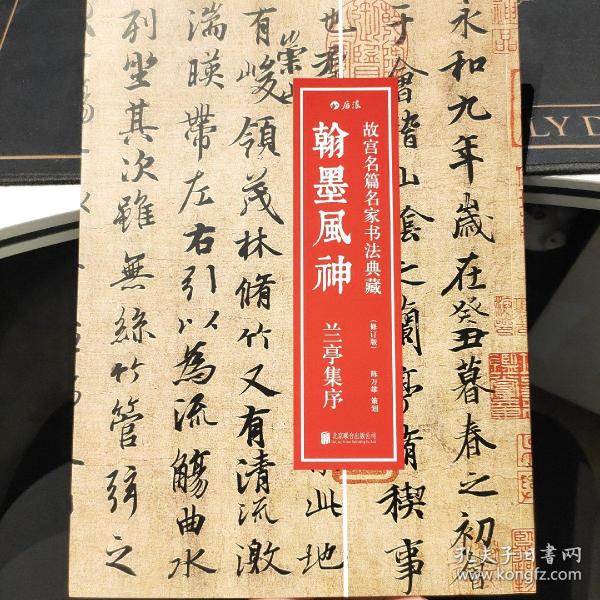 永和九年歲在癸丑暮春之初會
于會稽山陰之蘭亭脩稧事
也羣
此地
有崇
峻領茂林脩竹又有清流激
湍暎帶左右引以為流觴曲水
列坐其次雖無絲竹管弦之
后浪
故宫名篇名家书法典藏
(修订版)
陈万雄 策划
翰墨風神
兰亭集序
北京联合出版公司
LY D
神品
孔夫子旧书网
www.kongfz.com